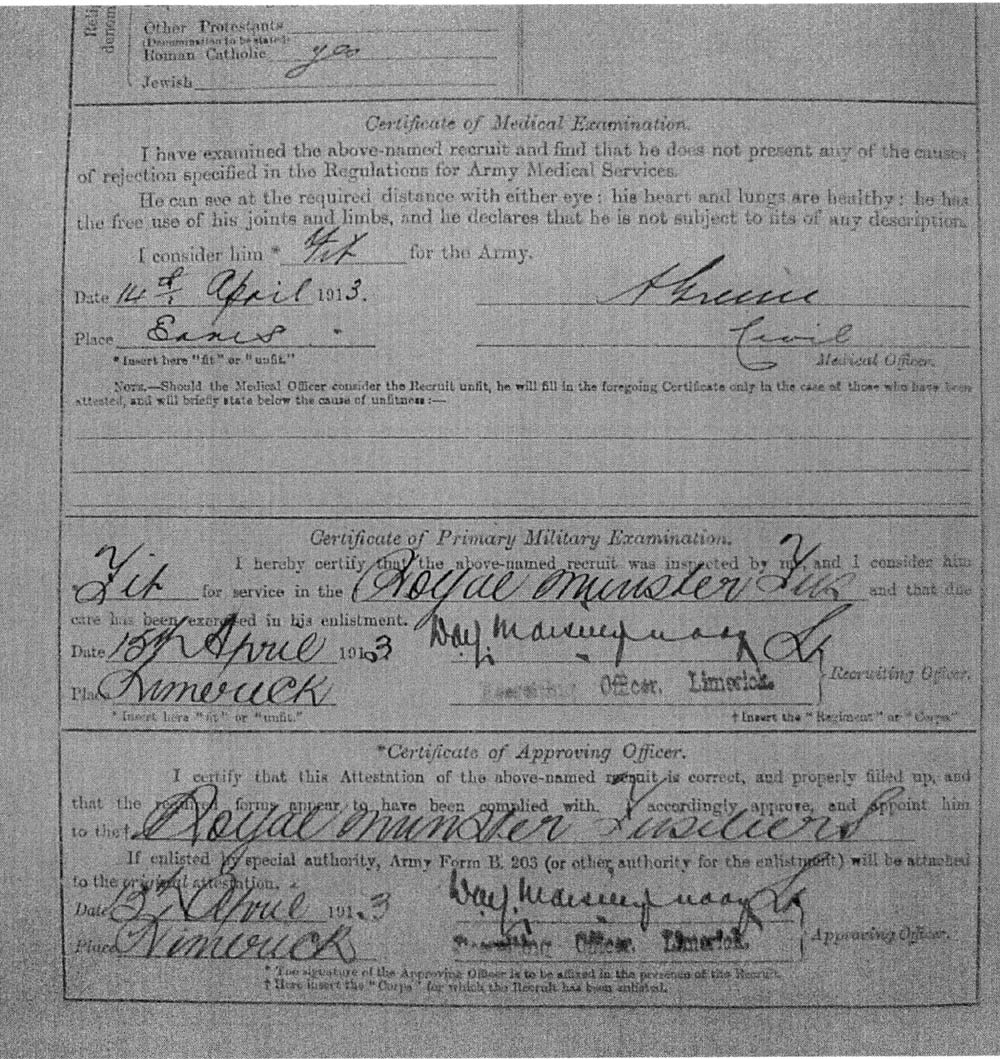 Other Protestants
(Denomination to be stated)
Roman Catholic yes
Jewish
Certificate of Medical Examination.
I have examined the above-named recruit and find that he does not present any of the causes
of rejection specified in the Regulations for Army Medical Services.
He can see at the required distance with either eye; his heart and lungs are healthy; he has
the free use of his joints and limbs, and he declares that he is not subject to fits of any description.
I consider him * Fit for the Army.
Date 14th April 1913. A Greene
Place Ennis Civil
* Insert here "fit" or "unfit." Medical Officer.
NOTE.—Should the Medical Officer consider the Recruit unfit, he will fill in the foregoing Certificate only in the case of those who have been
attested, and will briefly state below the cause of unfitness:—
Certificate of Primary Military Examination.
I hereby certify that the above-named recruit was inspected by me, and I consider him
* Fit for service in the Royal Munster Fus and that due
care has been exercised in his enlistment.
Date 15th April 1913 Lt
Place Limerick Recruiting Officer. Limerick. Recruiting Officer.
* Insert here "fit" or "unfit." † Insert the "Regiment" or "Corps"
*Certificate of Approving Officer.
I certify that this Attestation of the above-named recruit is correct, and properly filled up, and
that the required forms appear to have been complied with. I accordingly approve, and appoint him
to the † Royal Munster Fusiliers
If enlisted by special authority, Army Form B. 203 (or other authority for the enlistment) will be attached
to the original attestation.
Date April 1913 Lt
Place Limerick Recruiting Officer. Limerick. Approving Officer.
* The signature of the Approving Officer is to be affixed in the presence of the Recruit.
† Here insert the "Corps" for which the Recruit has been enlisted.